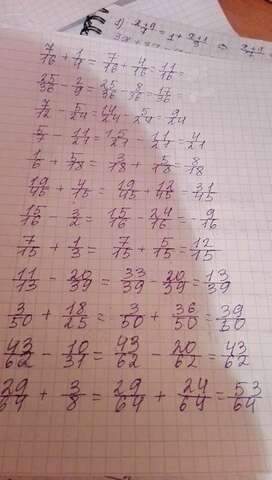 7/16 + 1/4 = 7/16 + 4/16 = 11/16 =
25/36 - 2/9 = 25/36 - 8/36 = 17/36 =
7/12 - 5/24 = 14/24 - 5/24 = 9/24
5/7 - 11/21 = 15/21 - 11/21 = 4/21
1/6 + 5/18 = 3/18 + 5/18 = 8/18
19/45 + 4/15 = 19/45 + 12/45 = 31/45
15/16 - 3/2 = 15/16 - 24/16 = - 9/16
7/15 + 1/3 = 7/15 + 5/15 = 12/15
11/13 - 20/39 = 33/39 - 20/39 = 13/39
3/50 + 18/25 = 3/50 + 36/50 = 39/50
43/62 - 10/31 = 43/62 - 20/62 = 43/62
29/64 + 3/8 = 29/64 + 24/64 = 53/64